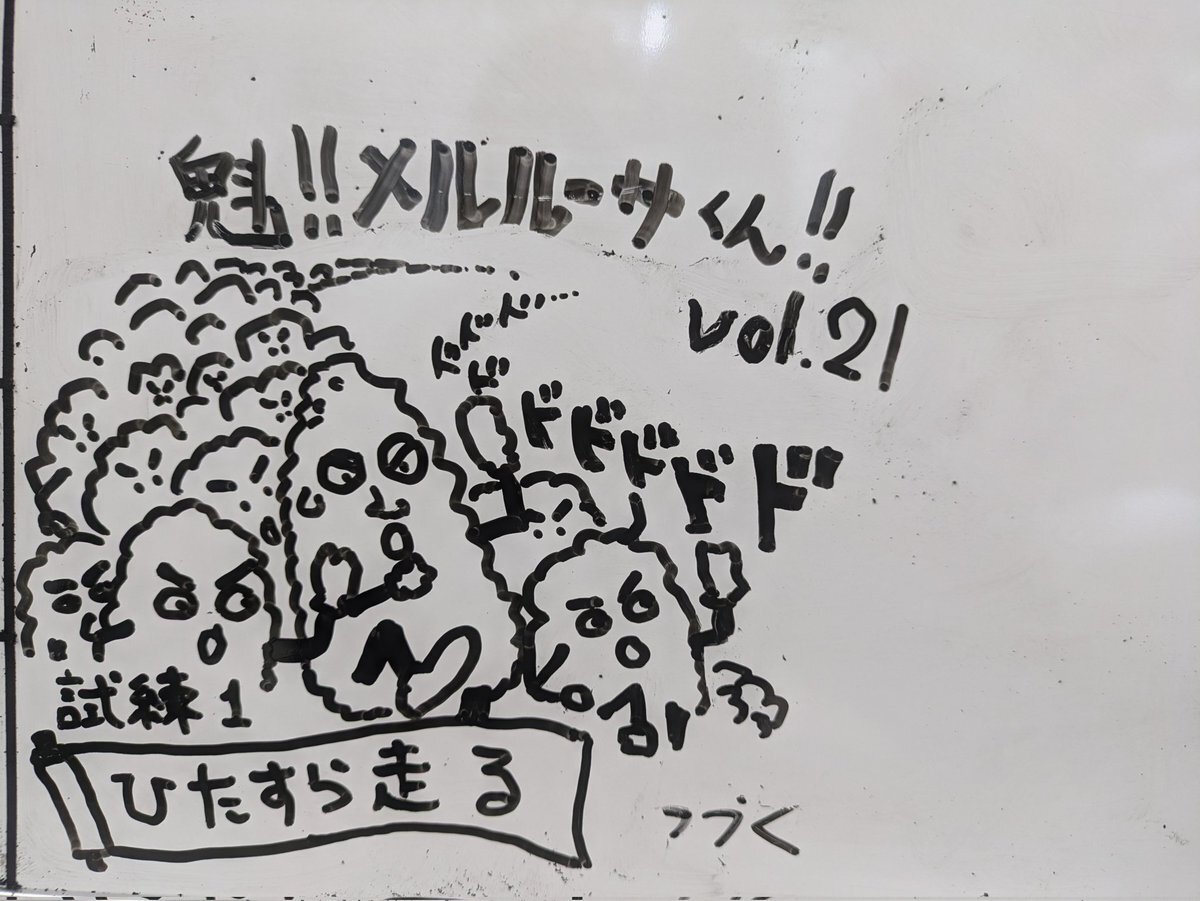 魁!!メルルーサくん!!
vol.21
ドドド…
ド
ドドドドド
試練1
ひたすら走る
つづく